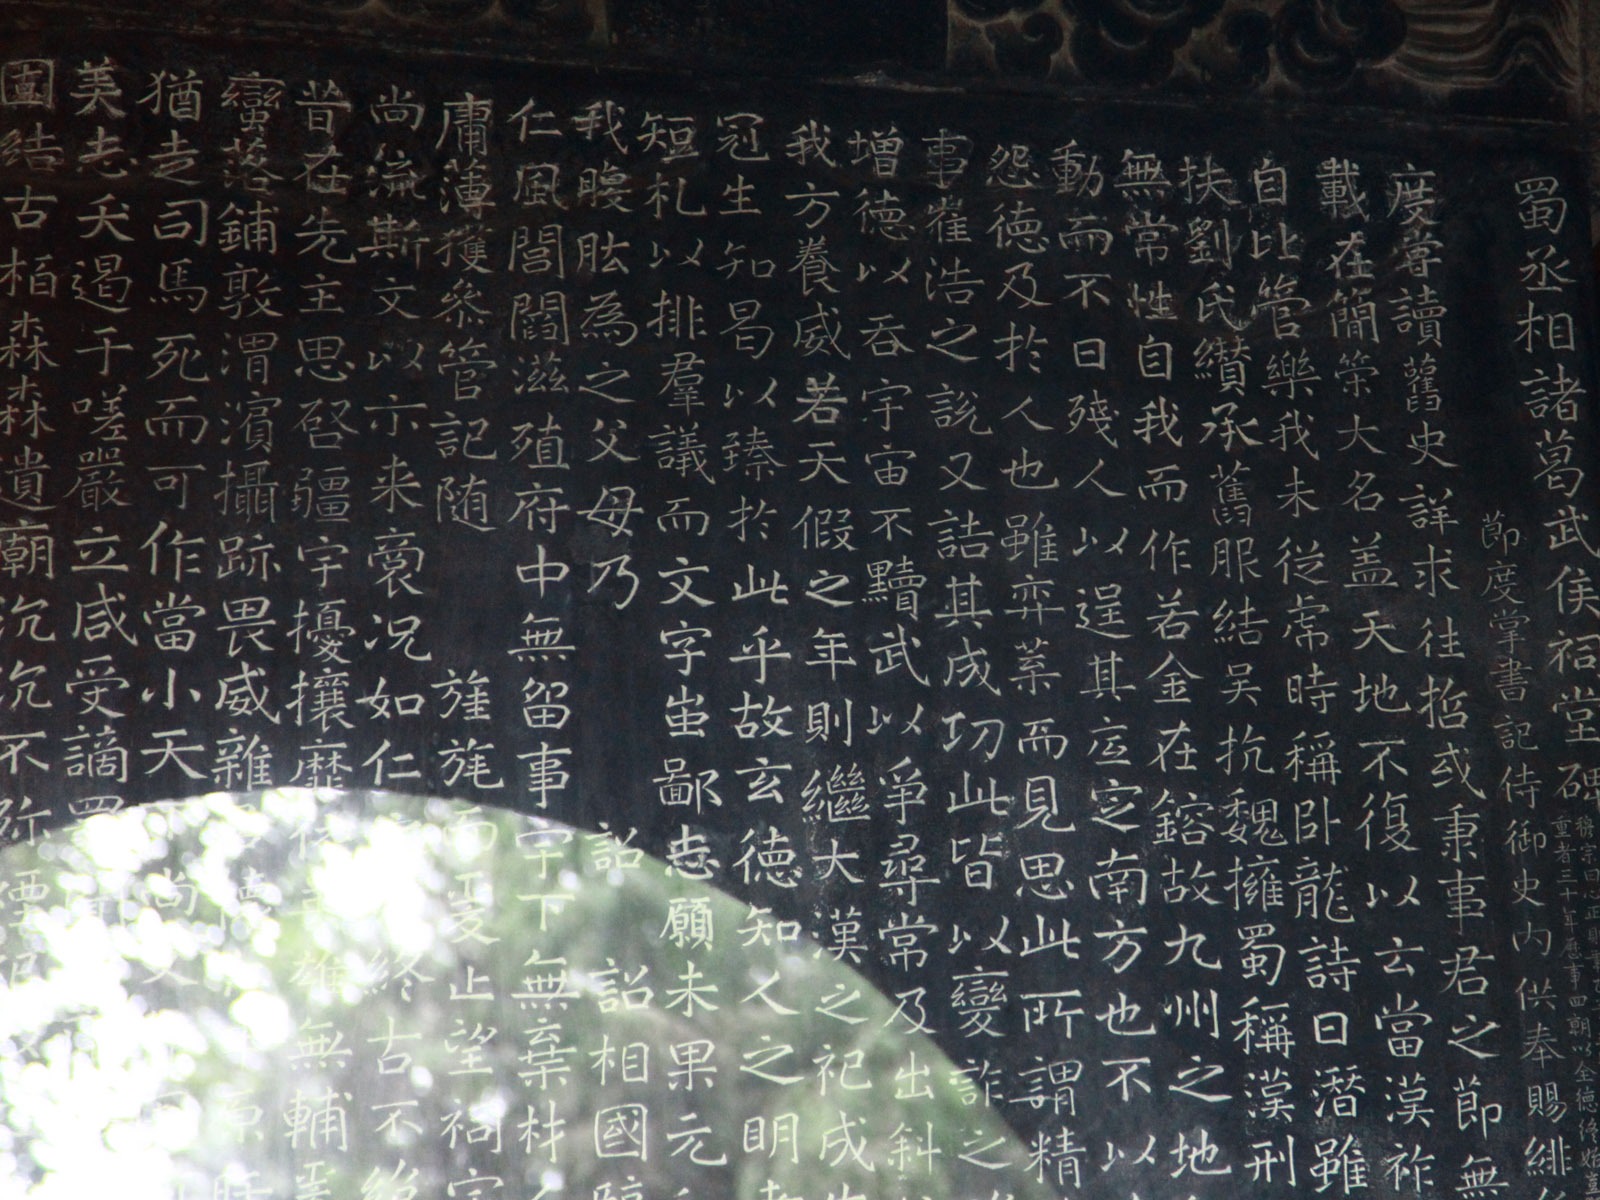 蜀丞相諸葛武侯祠堂碑
節度掌書記侍御史內供奉賜緋
度嘗讀舊史詳求往哲或秉事君之節無
載在簡策大名蓋天地不復以云當漢祚
自比管樂我未從虎時稱臥龍詩曰潛雖
扶劉氏纘承舊服結吳抗魏擁蜀稱漢刑
無常性自我而作若金在鎔故九州之地
動而不曰殘人以逞其底定南方也不以
怨德及於人也雖奕葉而見思此所謂精
事崔浩之說又詰其成功此皆以變詐之
增德以吞宇宙不黷武以爭尋常及出斜
我方養威若天假之年則繼大漢之祀成
冠生知曷以臻於此乎故玄德知人之明
短札以排羣議而文字蚩鄙志願未果元
我腹肱為之父母乃 詔 詔相國臨
仁風閭閻滋殖府中無留事宇下無棄材
庸薄獲參管記随 旌旄而爰止望祠宇
尚流斯文以示来裔況如仁 終古不絕
昔在先主思啓疆宇擾攘靡依 雄無輔
蠻落鋪敦渭濱攝跡畏威雜
猶走司馬死而可作當小天下尚父
美志夭遏于嗟嚴立咸受謫罪聞
圖結古栢森森遺廟沉沉不